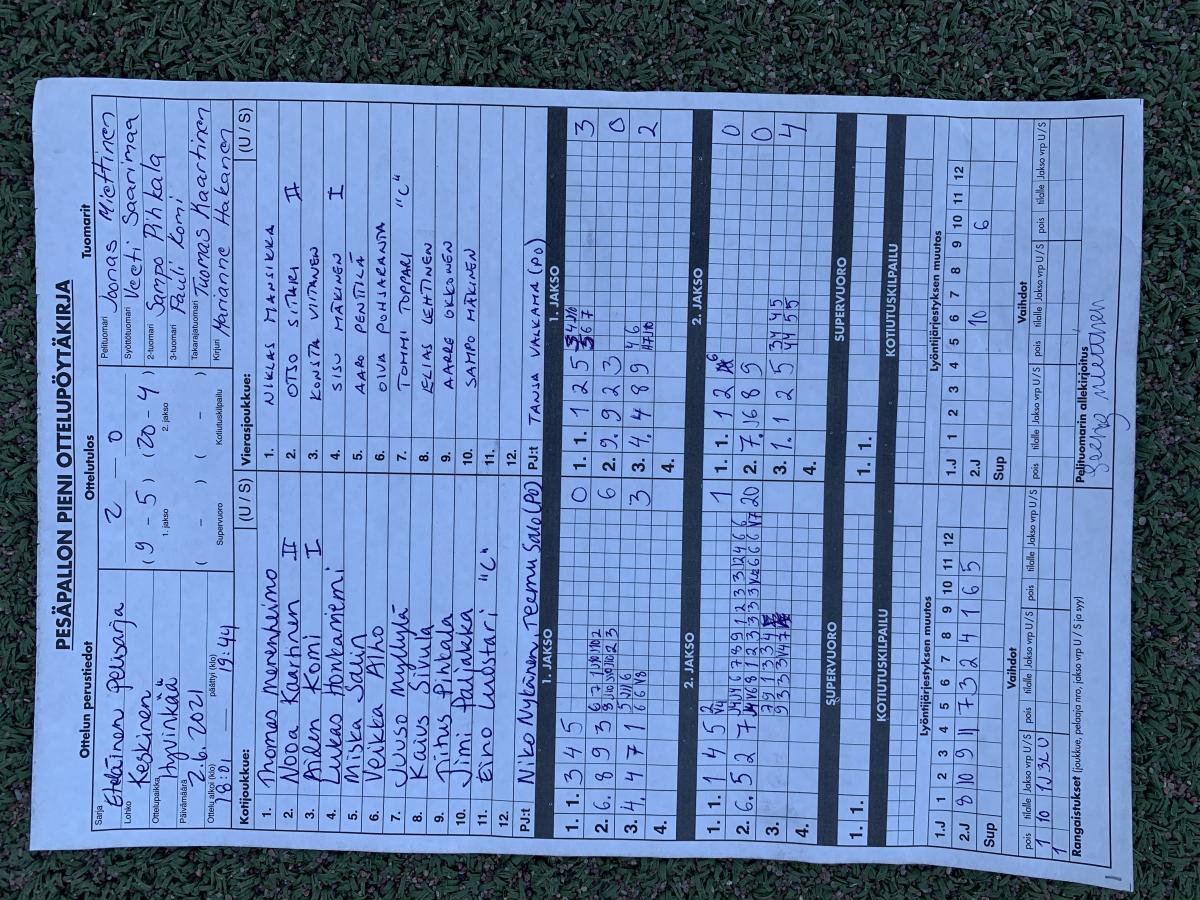 PESÄPALLON PIENI OTTELUPÖYTÄKIRJA
Ottelun perustiedot
Sarja
Eteläinen pelisarja
Lohko
Keskinen
Ottelupaikka
Hyvinkää
Päivämäärä
2.6.2021
Ottelu alkoi (klo)
18:01 — 19:44
päättyi (klo)
Ottelutulos
2 — 0
(9 - 5) (20 - 4)
1. jakso 2. jakso
( - ) ( - )
Supervuoro Kotiutuskilpailu
Tuomarit
Pelituomari Joonas Miettinen
Syöttötuomari Veeti Saarimaa
2-tuomari Sampo Pihkala
3-tuomari Pauli Komi
Takarajatuomari Tuomas Kaartinen
Kirjuri Marianne Hakanen
Kotijoukkue: (U / S)
1. Thomas Manenheimo
2. Nooa Kaartinen II
3. Aiden Komi I
4. Lukas Honkaniemi
5. Miska Salin
6. Veikka Alho
7. Juuso Myllylä
8. Kaius Sivula
9. Titus Pihkala
10. Jimi Paljakka
11. Eino Luostari "C"
12.
PJ:t Niko Nykänen, Teemu Salo (PO)
Vierasjoukkue: (U / S)
1. NIKLAS MANSIKKA
2. OTSO SITARI II
3. KONSTA VIITANEN
4. SISU MÄKINEN I
5. AARO PENTTILÄ
6. OIVA POHJARANTA
7. TOMMI TOPPARI "C"
8. ELIAS LEHTINEN
9. AARRE UKKONEN
10. SAMPO MÄKINEN
11.
12.
PJ:t TANJA VAKAMA (PO)
1. JAKSO
1. 1. 3 4 5 0
2. 6. 8 9 3 6
3. 4. 4 7 1 3
4.
1. JAKSO
1. 1. 1 2 5 3
2. 9. 9 2 3 0
3. 4. 4 8 9 2
4.
2. JAKSO
1. 1. 1 4 5 1
2. 6. 5 2 7 20
3.
4.
2. JAKSO
1. 1. 1 2 0
2. 7. 8 9 0
3. 1. 1 2 5 4
4.
SUPERVUORO
1. 1.
SUPERVUORO
1. 1.
KOTIUTUSKILPAILU
KOTIUTUSKILPAILU
Lyöntijärjestyksen muutos
1.J 1 2 3 4 5 6 7 8 9 10 11 12
2.J 8 10 9 11 7 3 2 4 1 6 5
Sup
Lyöntijärjestyksen muutos
1.J 1 2 3 4 5 6 7 8 9 10 11 12
2.J 10 6
Sup
Vaihdot
pois tilalle Jakso vrp U/S pois tilalle Jakso vrp U/S pois tilalle Jakso vrp U/S
1 10 1J 3L U
1
Vaihdot
pois tilalle Jakso vrp U/S pois tilalle Jakso vrp U/S pois tilalle Jakso vrp U/S
Rangaistukset (joukkue, pelaaja nro, jakso vrp U / S ja syy)
Pelituomarin allekirjoitus